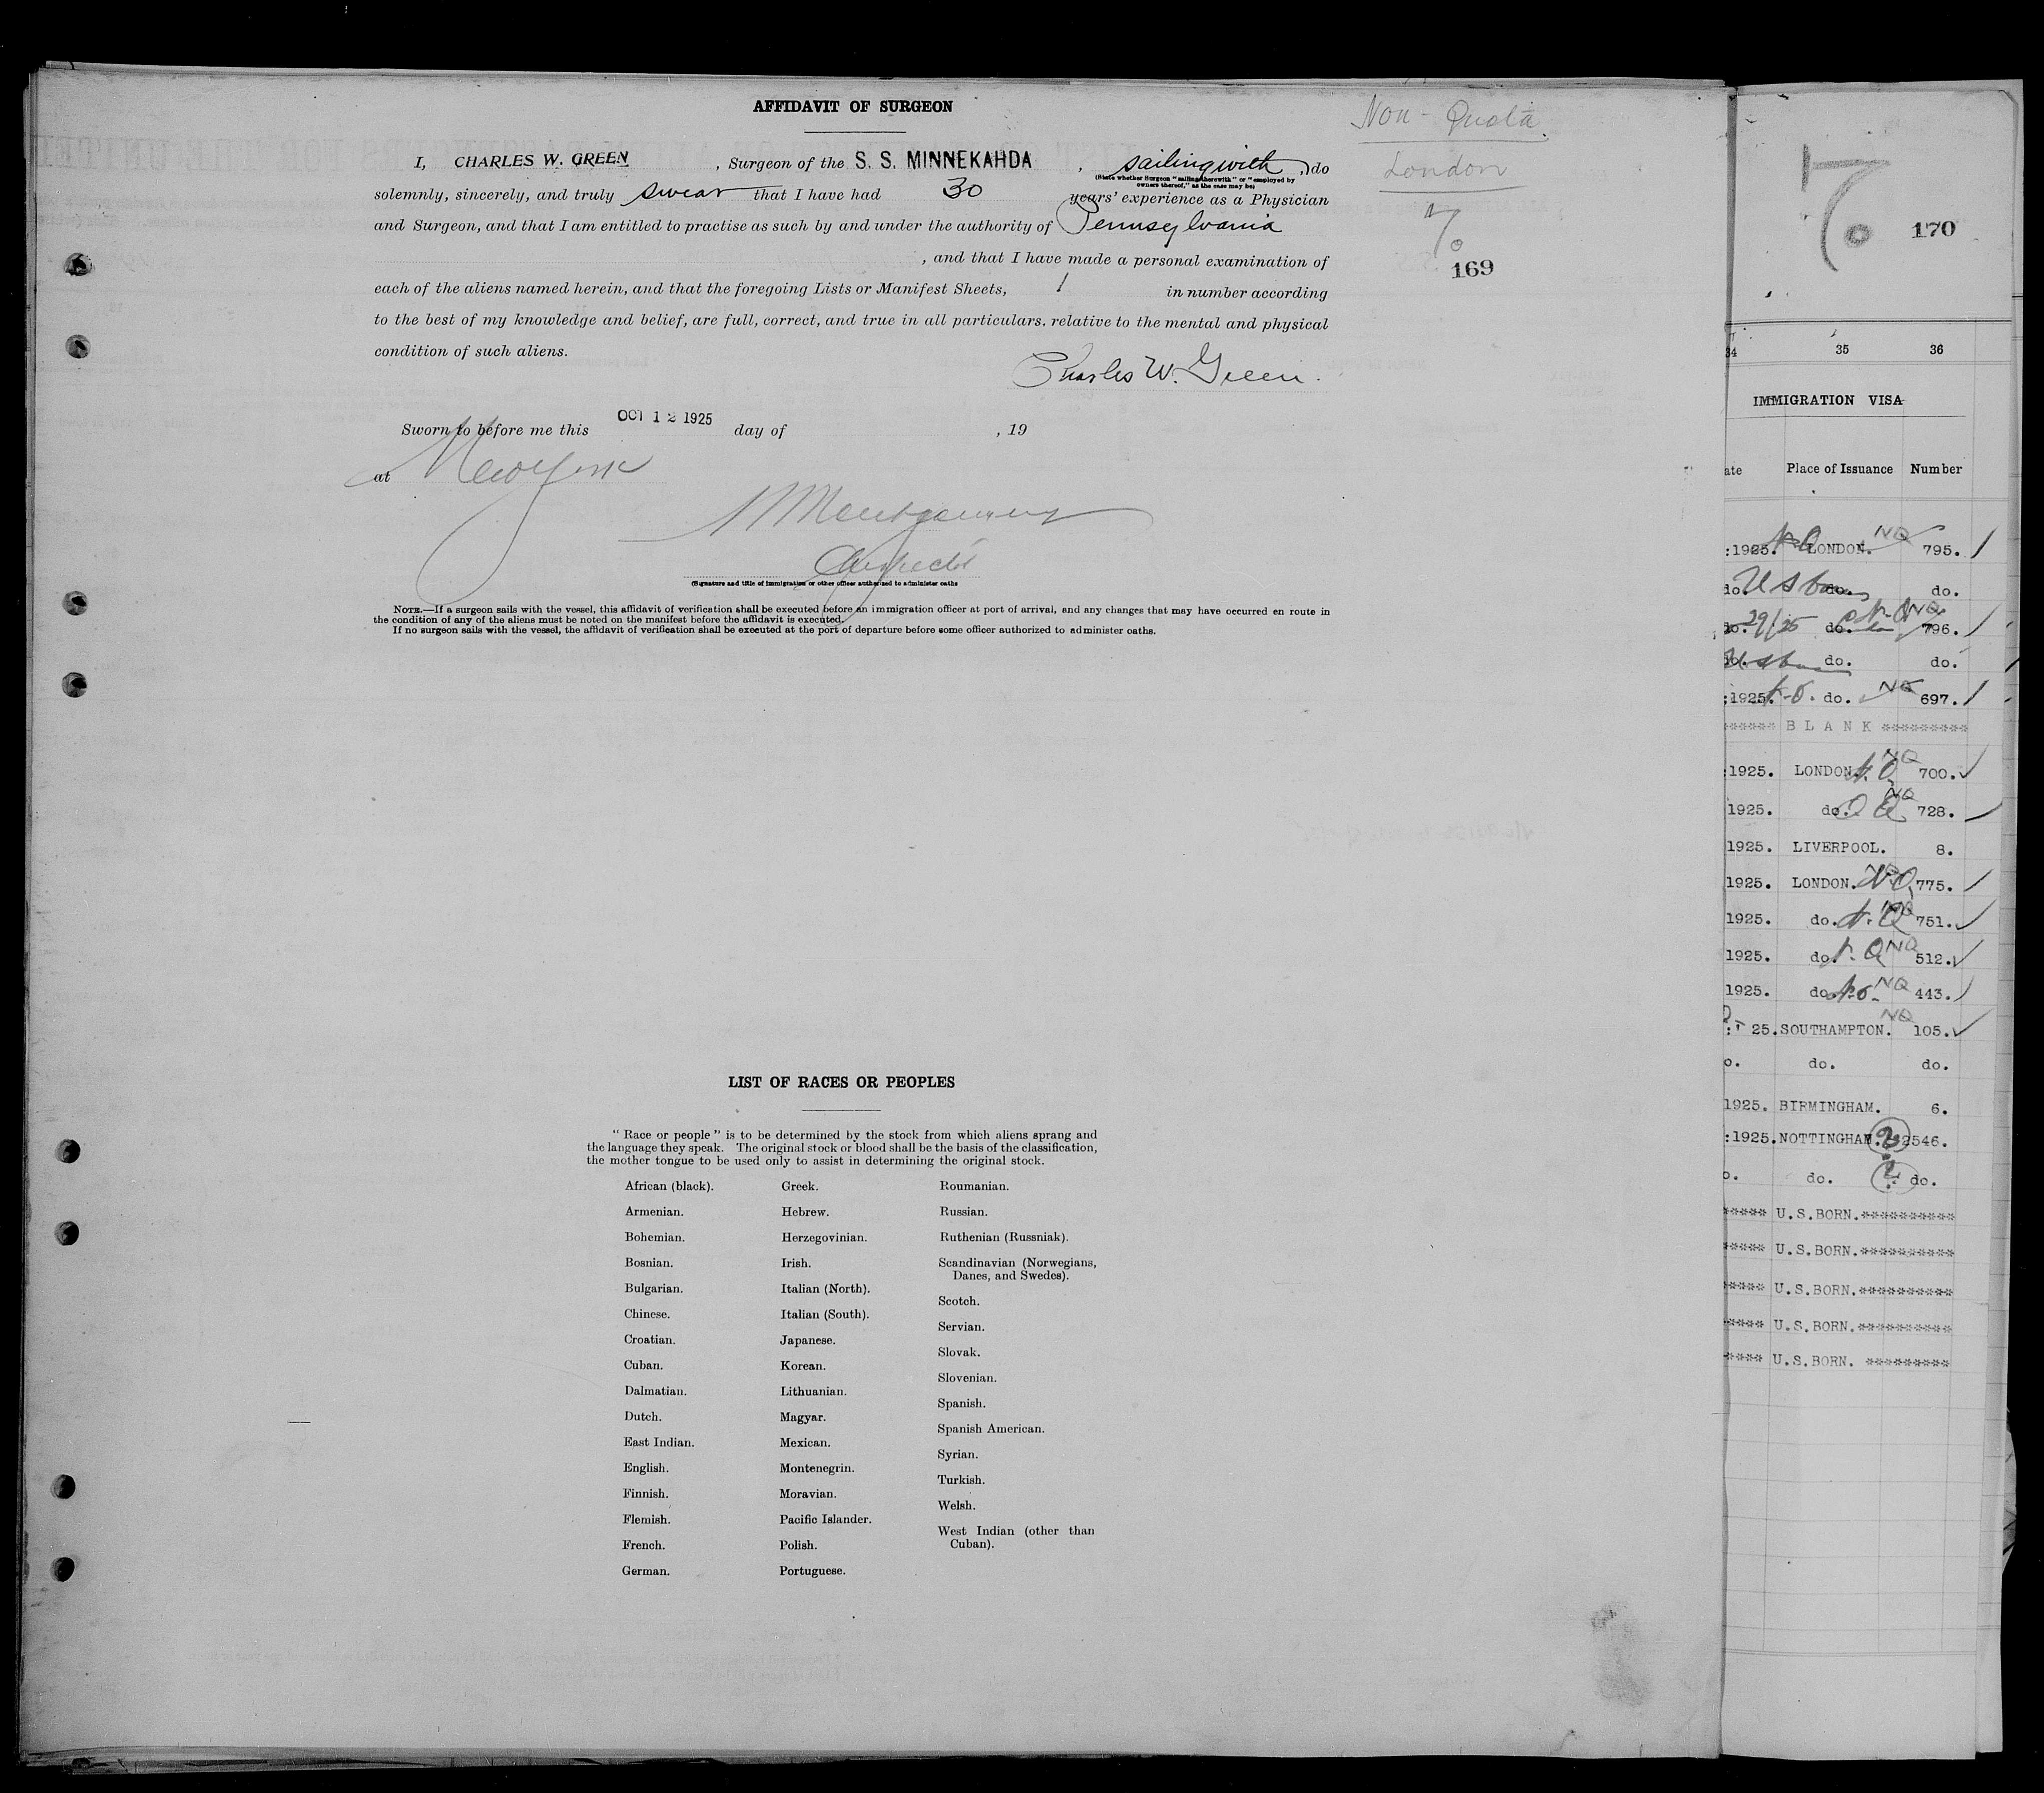 AFFIDAVIT OF SURGEON
Non-Quota
London
I, CHARLES W. GREEN , Surgeon of the S. S. MINNEKAHDA , sailing with , do
(State whether Surgeon "sailing therewith" or "employed by
owners thereof," as the case may be)
solemnly, sincerely, and truly swear that I have had 30 years' experience as a Physician
and Surgeon, and that I am entitled to practise as such by and under the authority of Pennsylvania
, and that I have made a personal examination of
7
0
169
each of the aliens named herein, and that the foregoing Lists or Manifest Sheets, 1 in number according
to the best of my knowledge and belief, are full, correct, and true in all particulars, relative to the mental and physical
condition of such aliens.
Charles W. Green.
Sworn to before me this OCT 12 1925 day of , 19
at New York
Montgomery
(Signature and title of immigration or other officer authorized to administer oaths
NOTE.—If a surgeon sails with the vessel, this affidavit of verification shall be executed before an immigration officer at port of arrival, and any changes that may have occurred en route in
the condition of any of the aliens must be noted on the manifest before the affidavit is executed.
If no surgeon sails with the vessel, the affidavit of verification shall be executed at the port of departure before some officer authorized to administer oaths.
LIST OF RACES OR PEOPLES
" Race or people " is to be determined by the stock from which aliens sprang and
the language they speak. The original stock or blood shall be the basis of the classification,
the mother tongue to be used only to assist in determining the original stock.
African (black).
Armenian.
Bohemian.
Bosnian.
Bulgarian.
Chinese.
Croatian.
Cuban.
Dalmatian.
Dutch.
East Indian.
English.
Finnish.
Flemish.
French.
German.
Greek.
Hebrew.
Herzegovinian.
Irish.
Italian (North).
Italian (South).
Japanese.
Korean.
Lithuanian.
Magyar.
Mexican.
Montenegrin.
Moravian.
Pacific Islander.
Polish.
Portuguese.
Roumanian.
Russian.
Ruthenian (Russniak).
Scandinavian (Norwegians,
Danes, and Swedes).
Scotch.
Servian.
Slovak.
Slovenian.
Spanish.
Spanish American.
Syrian.
Turkish.
Welsh.
West Indian (other than
Cuban).
7
0
170
34 35 36
IMMIGRATION VISA
ate Place of Issuance Number
:1925. LONDON. NQ 795. /
do. US born do. do.
do. 29/25 do. NQ 796. /
do. US born do. do.
:1925. do. NQ 697. /
****** B L A N K *********
:1925. LONDON. NQ 700. ✓
1925. do. NQ 728. /
1925. LIVERPOOL. 8.
1925. LONDON. NQ 775. /
1925. do. NQ 751. ✓
1925. do. NQ 512. ✓
1925. do. NQ 443. /
:' 25. SOUTHAMPTON. NQ 105. ✓
o. do. do.
1925. BIRMINGHAM. 6.
:1925. NOTTINGHAM. 2546.
o. do. ? do.
***** U.S.BORN.**********
**** U.S.BORN.**********
***** U.S.BORN.**********
**** U.S.BORN.**********
**** U.S.BORN. *********